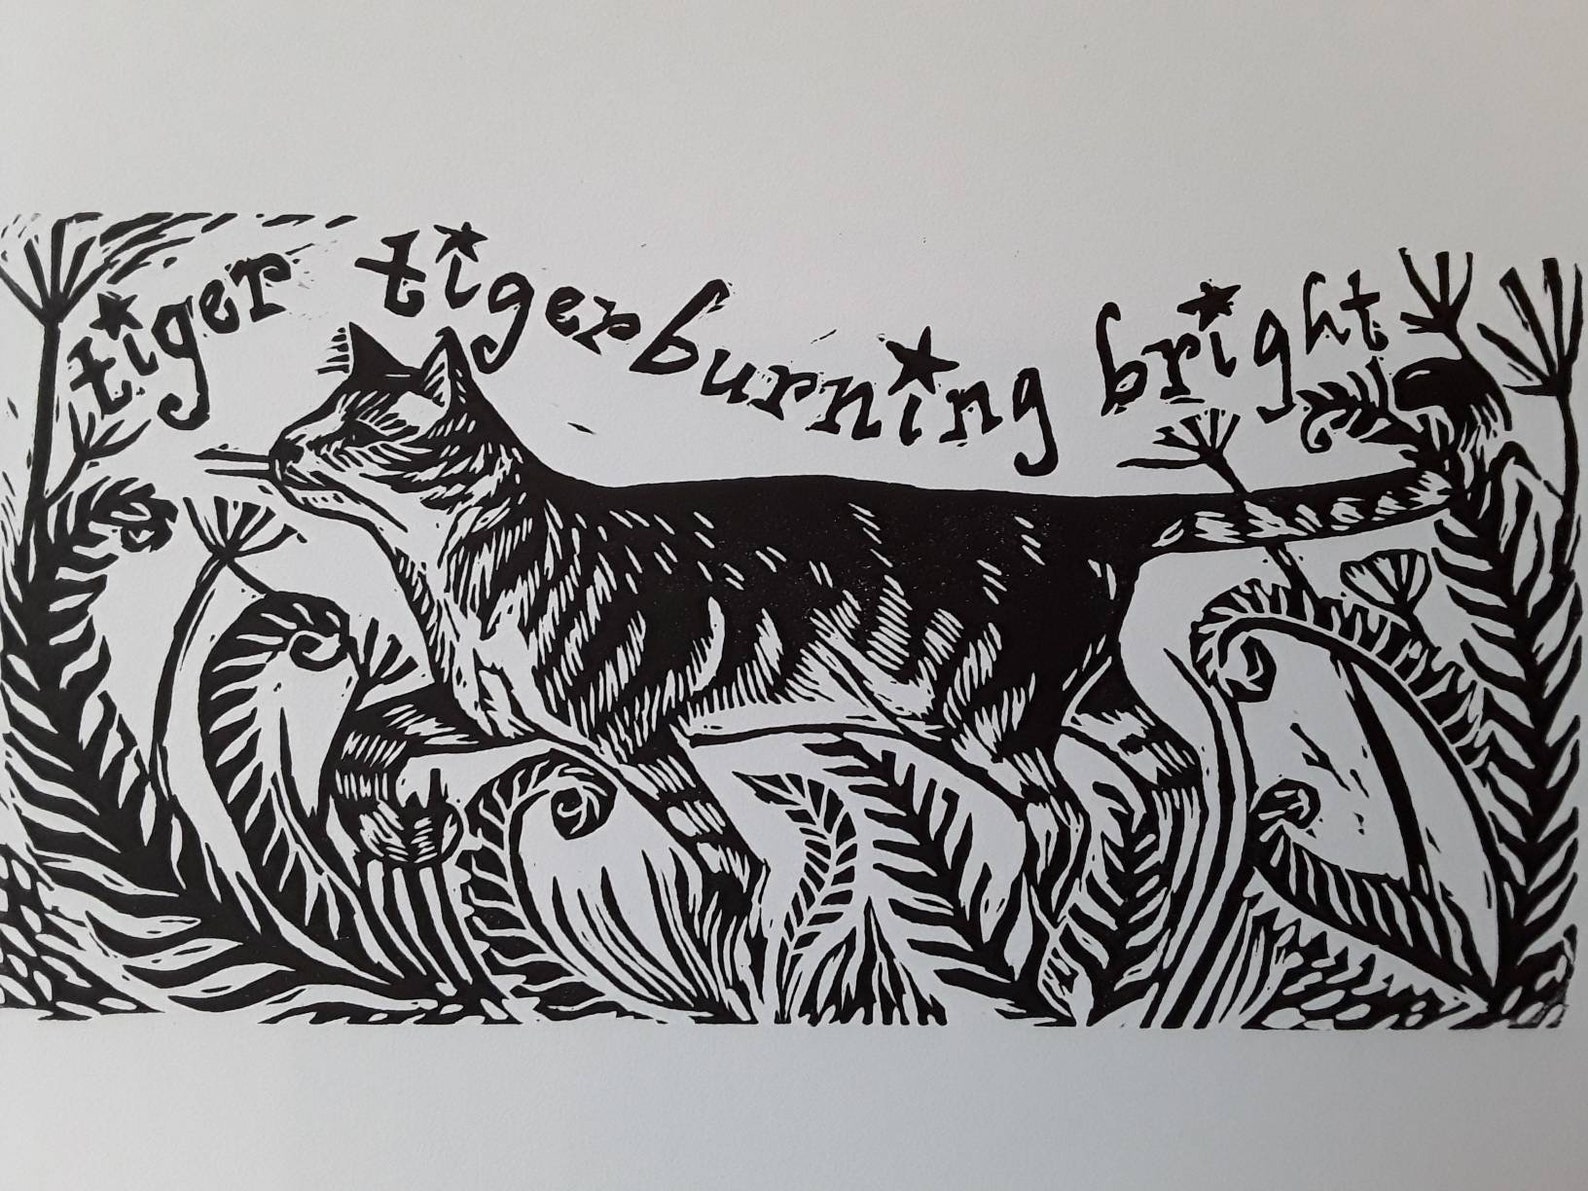 tiger tiger burning bright